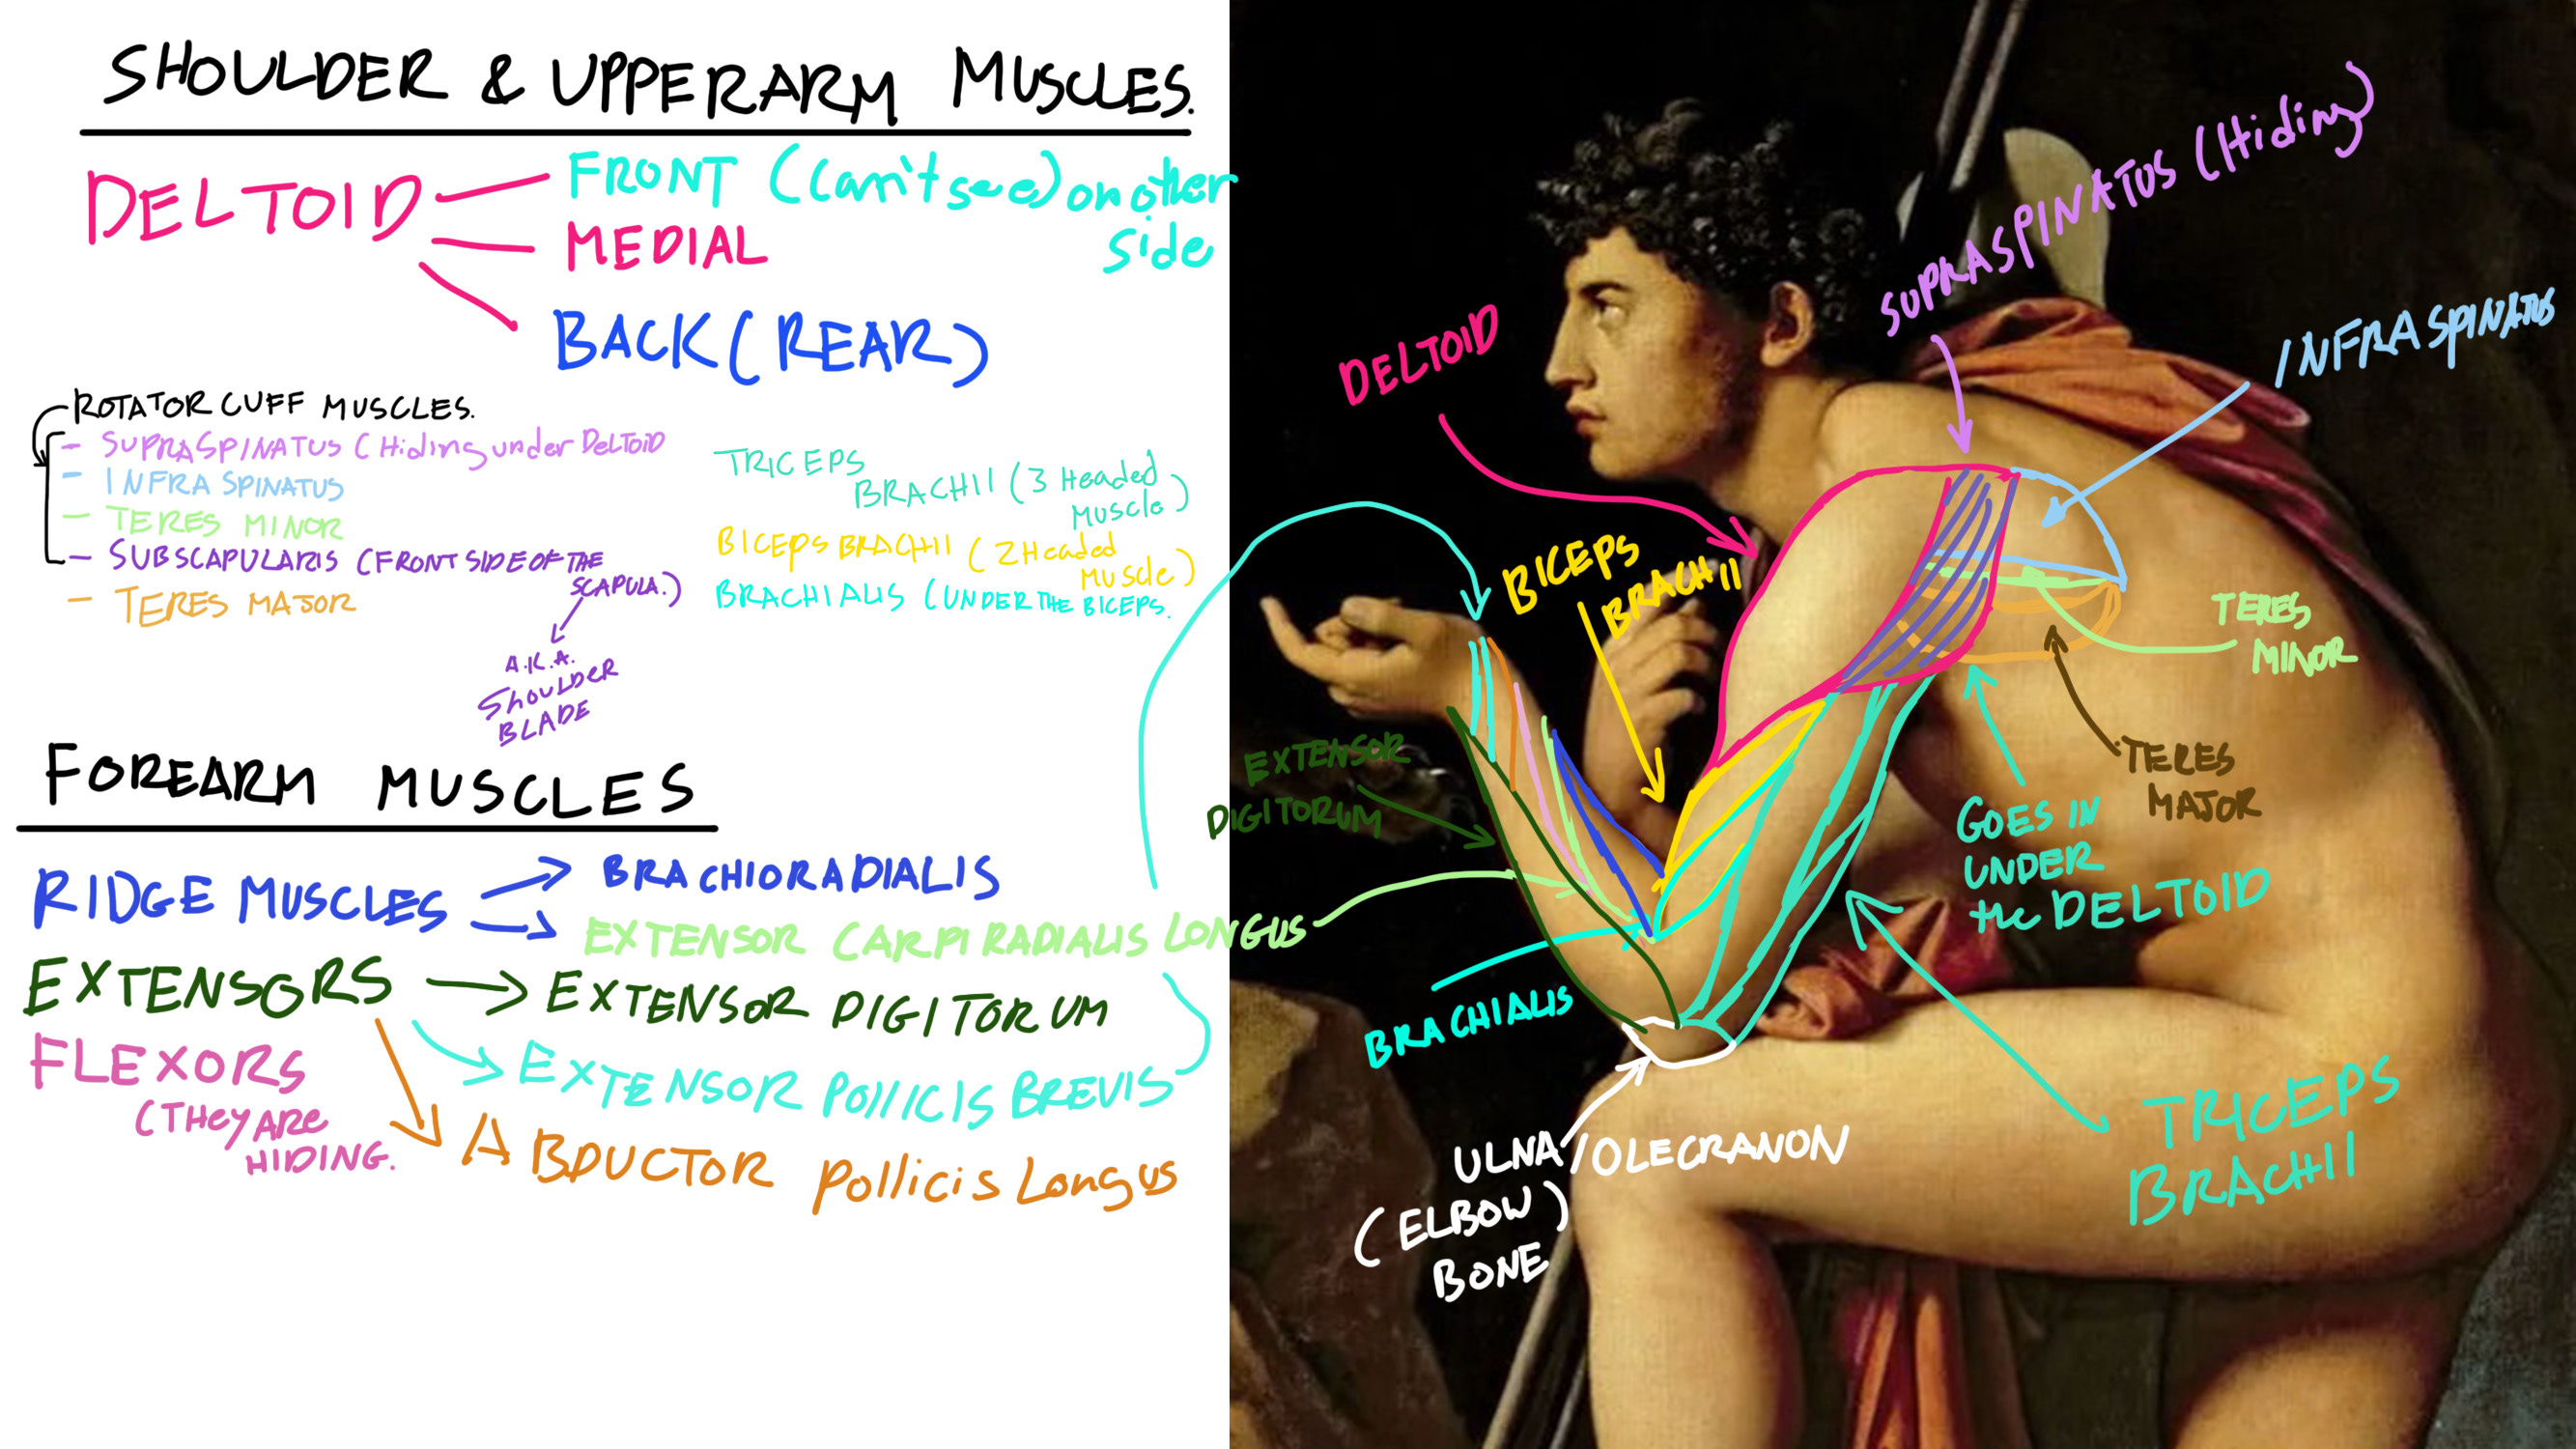 SHOULDER & UPPERARM MUSCLES.
DELTOID
FRONT (Can't see) on other
side
MEDIAL
BACK (REAR)
ROTATOR CUFF MUSCLES.
- SUPRASPINATUS (Hiding under DELTOID
- INFRA SPINATUS
- TERES MINOR
- SUBSCAPULARIS (FRONT SIDE OF THE
SCAPULA.)
A.K.A.
ShoulDER
BLADE
- TERES MAJOR
TRICEPS
BRACHII (3 Headed
Muscle)
BICEPS BRACHII (2 Headed
Muscle)
BRACHIALIS (UNDER THE BICEPS.
FOREARM MUSCLES
RIDGE MUSCLES
BRACHIORADIALIS
EXTENSOR CARPI RADIALIS LONGUS
EXTENSORS
EXTENSOR DIGITORUM
FLEXORS
(THEy ARE
HIDING.
EXTENSOR POllICIS BREVIS
ABDUCTOR pollicis Longus
DELTOID
SUPRASPINATUS (Hiding)
INFRA SPINATUS
BICEPS
BRACHII
TERES
MINOR
TERES
MAJOR
EXTENSOR
DIGITORUM
GOES IN
UNDER
the DELTOID
BRACHIALIS
ULNA/OLECRANON
(ELBOW)
BONE
TRICEPS
BRACHII